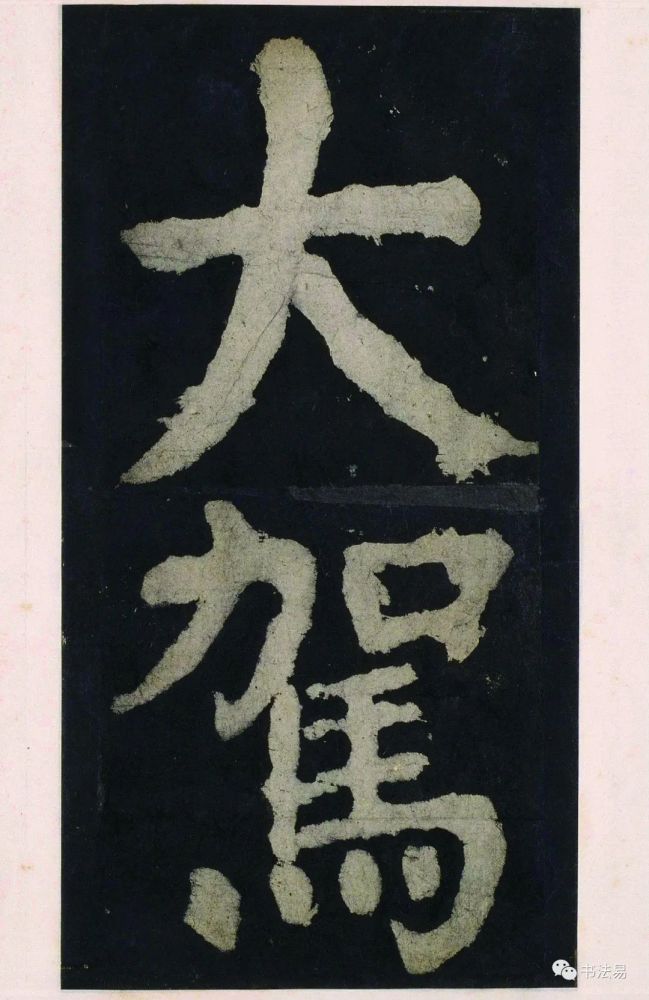 大
駕
书法易